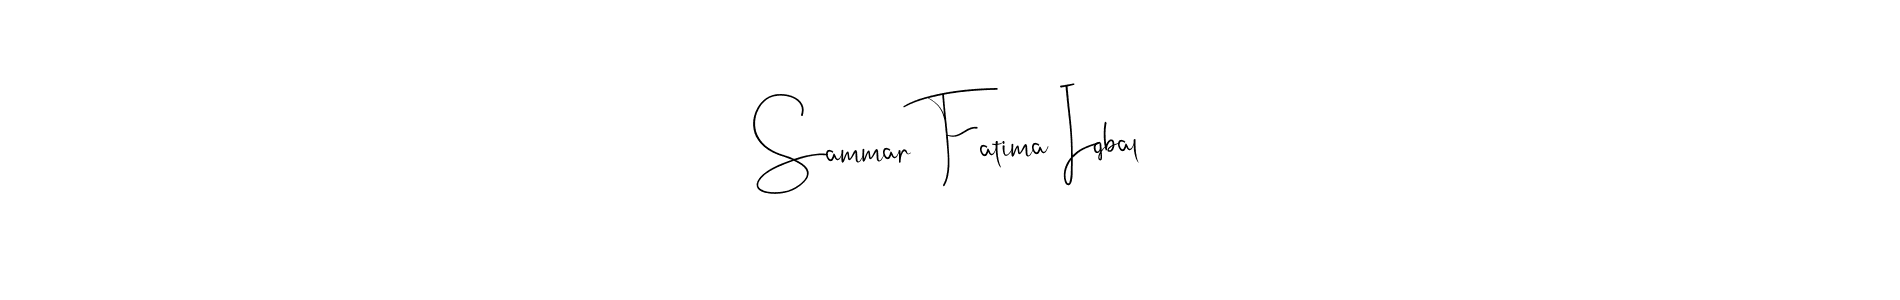 Sammar Fatima Iqbal